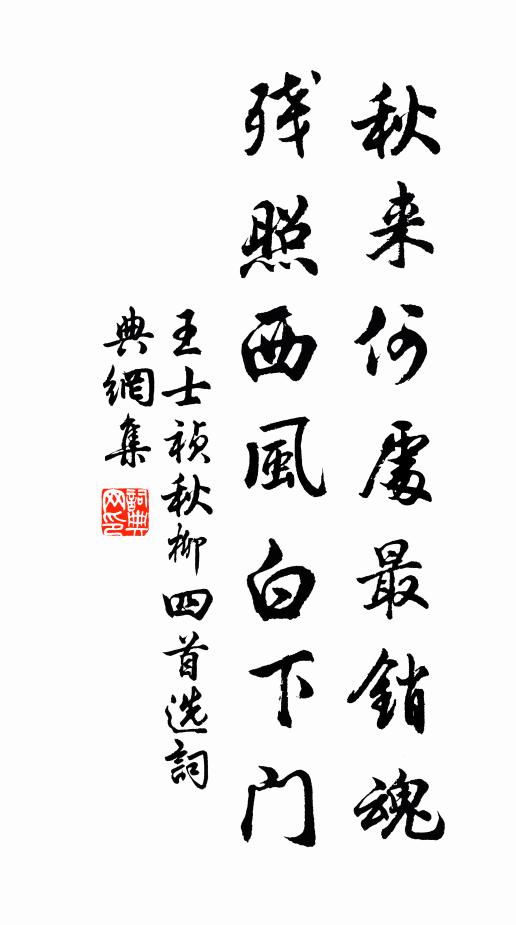 秋来何處最銷魂
残照西風白下门
王士禎秋柳四首选詞
典網集
詞典网印